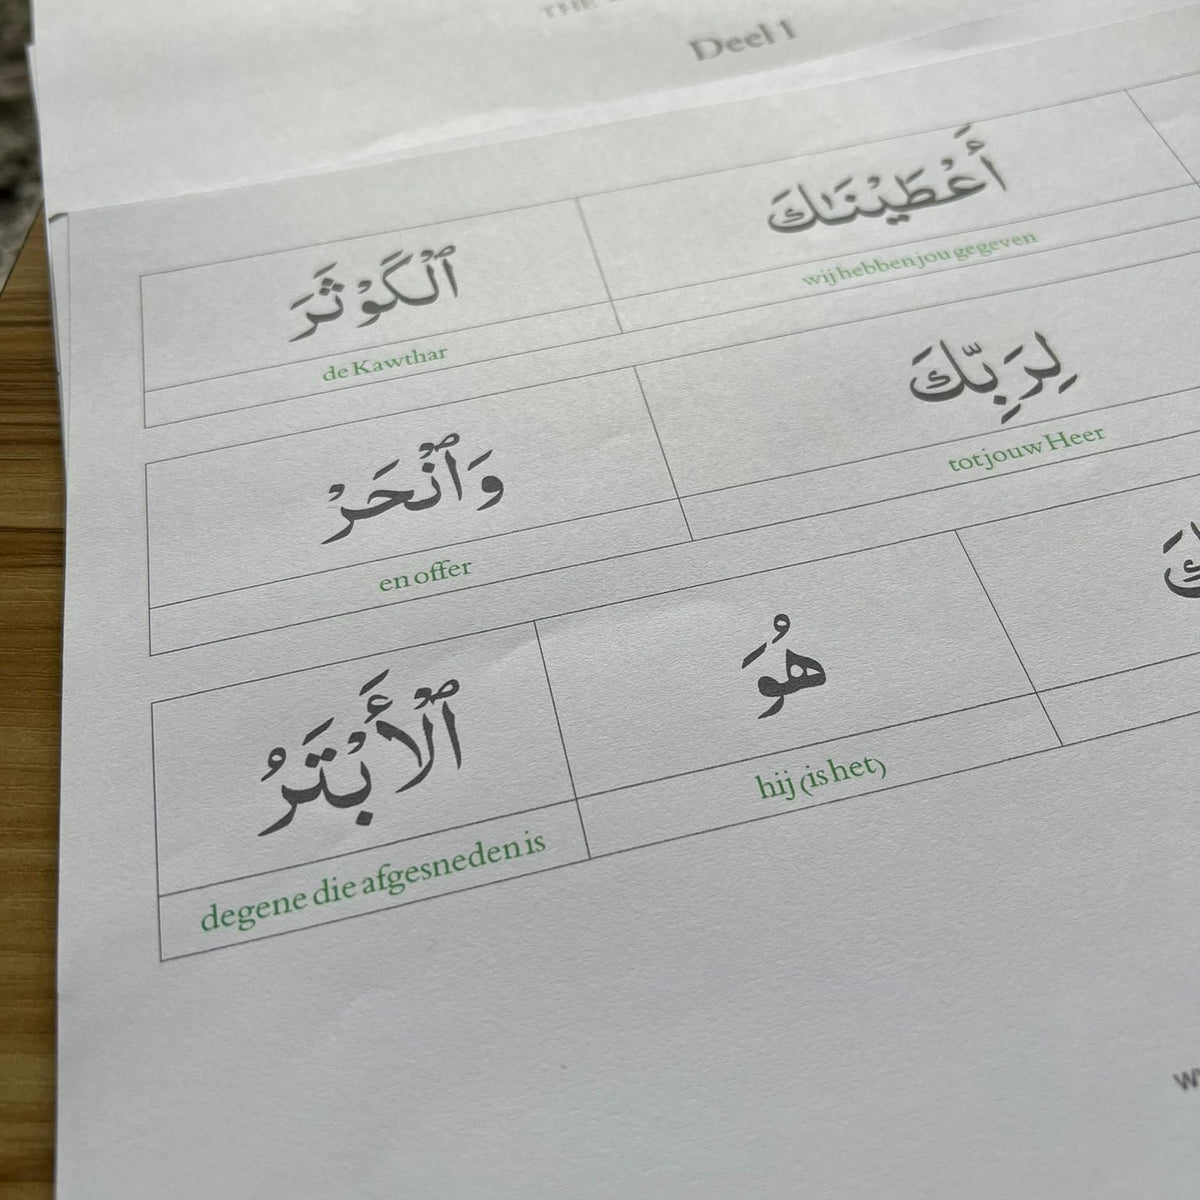 THE
Deel 1
أَعْطَيْنَـٰكَ ٱلْكَوْثَرَ
wij hebben jou gegeven de Kawthar
لِرَبِّكَ وَٱنْحَرْ
tot jouw Heer en offer
هُوَ ٱلْأَبْتَرُ
hij (is het) degene die afgesneden is